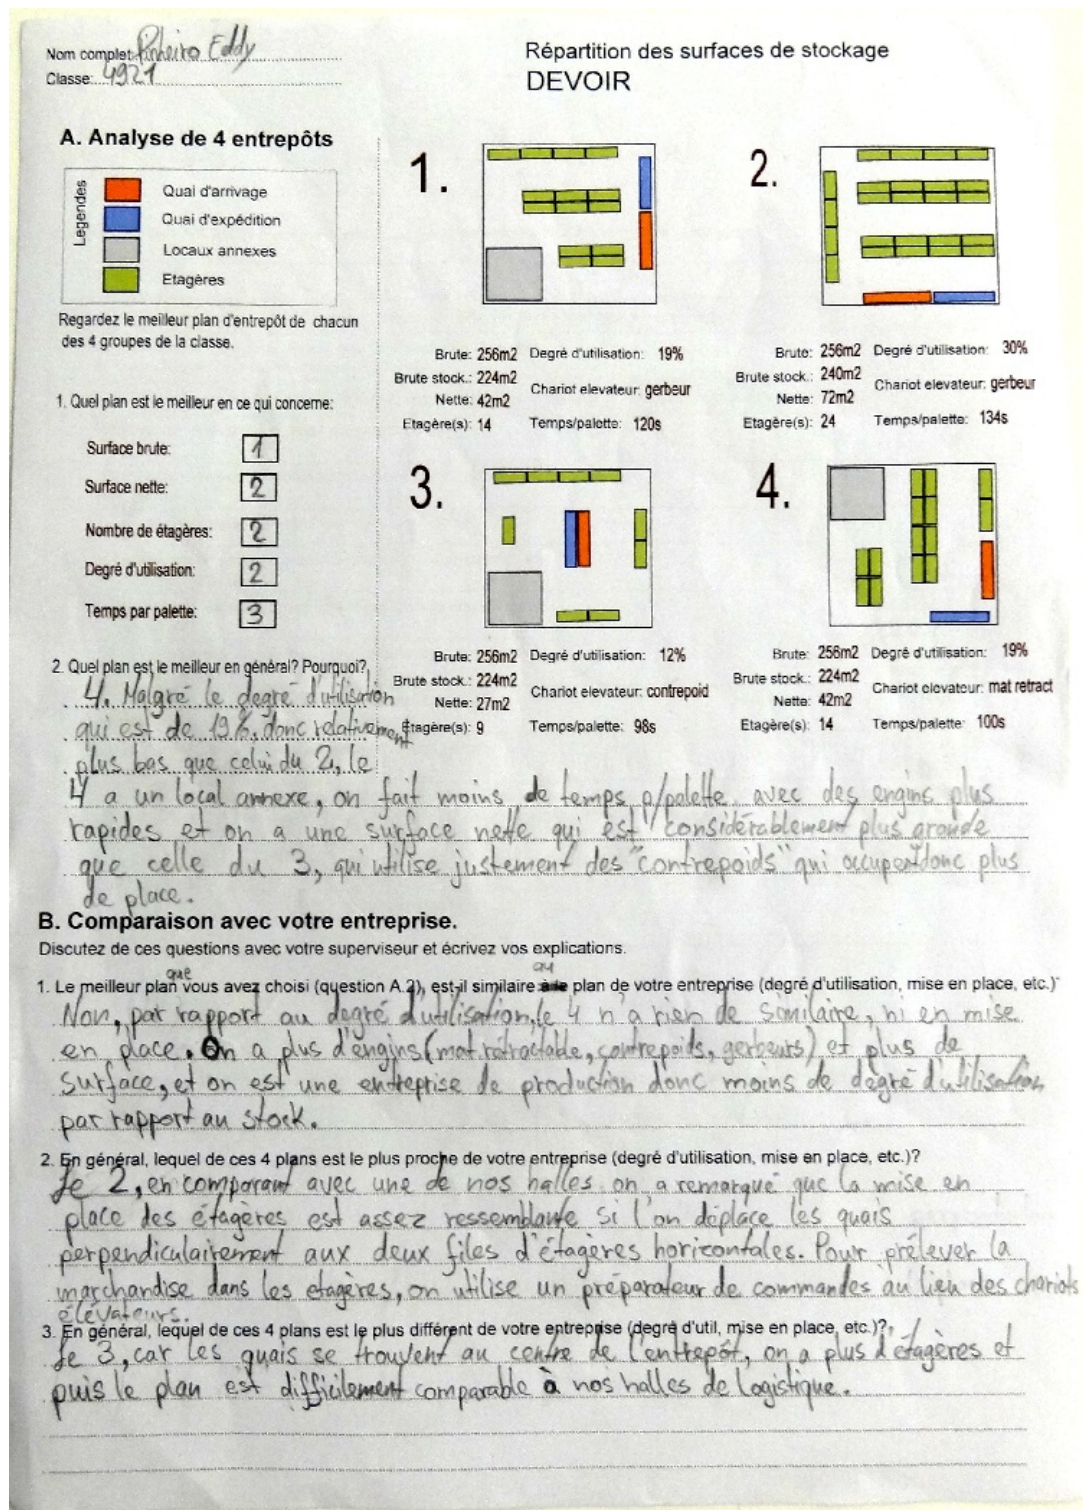 Nom complet: Pinheiro Eddy
Classe: 4921
Répartition des surfaces de stockage
DEVOIR
A. Analyse de 4 entrepôts
Legendes
Quai d'arrivage
Quai d'expédition
Locaux annexes
Etagères
Regardez le meilleur plan d'entrepôt de chacun
des 4 groupes de la classe.
1. Quel plan est le meilleur en ce qui concerne:
Surface brute: 1
Surface nette: 2
Nombre de étagères: 2
Degré d'utilisation: 2
Temps par palette: 3
1.
Brute: 256m2 Degré d'utilisation: 19%
Brute stock.: 224m2
Chariot elevateur: gerbeur
Nette: 42m2
Etagère(s): 14 Temps/palette: 120s
2.
Brute: 256m2 Degré d'utilisation: 30%
Brute stock.: 240m2
Chariot elevateur: gerbeur
Nette: 72m2
Etagère(s): 24 Temps/palette: 134s
3.
Brute: 256m2 Degré d'utilisation: 12%
Brute stock.: 224m2
Chariot elevateur: contrepoid
Nette: 27m2
Etagère(s): 9 Temps/palette: 98s
4.
Brute: 256m2 Degré d'utilisation: 19%
Brute stock.: 224m2
Chariot elevateur: mat retract
Nette: 42m2
Etagère(s): 14 Temps/palette: 100s
2. Quel plan est le meilleur en général? Pourquoi?
4. Malgré le degré d'utilisation
qui est de 19%, donc relativement
plus bas que celui du 2, le
4 a un local annexe, on fait moins de temps p/palette avec des engins plus
rapides et on a une surface nette qui est considérablement plus grande
que celle du 3, qui utilise justement des "contrepoids" qui occupent donc plus
de place.
B. Comparaison avec votre entreprise.
Discutez de ces questions avec votre superviseur et écrivez vos explications.
1. Le meilleur plan que vous avez choisi (question A.2), est-il similaire au plan de votre entreprise (degré d'utilisation, mise en place, etc.)
Non, par rapport au degré d'utilisation, le 4 n'a rien de similaire, ni en mise
en place. On a plus d'engins (mat rétractable, contrepoids, gerbeurs) et plus de
surface, et on est une entreprise de production donc moins de degré d'utilisation
par rapport au stock.
2. En général, lequel de ces 4 plans est le plus proche de votre entreprise (degré d'utilisation, mise en place, etc.)?
Le 2, en comparant avec une de nos halles on a remarqué que la mise en
place des étagères est assez ressemblante si l'on déplace les quais
perpendiculairement aux deux files d'étagères horizontales. Pour prélever la
marchandise dans les etagères, on utilise un préparateur de commandes au lieu des chariots
élévateurs.
3. En général, lequel de ces 4 plans est le plus différent de votre entreprise (degré d'util, mise en place, etc.)?
Le 3, car les quais se trouvent au centre de l'entrepôt, on a plus d'étagères et
puis le plan est difficilement comparable à nos halles de logistique.